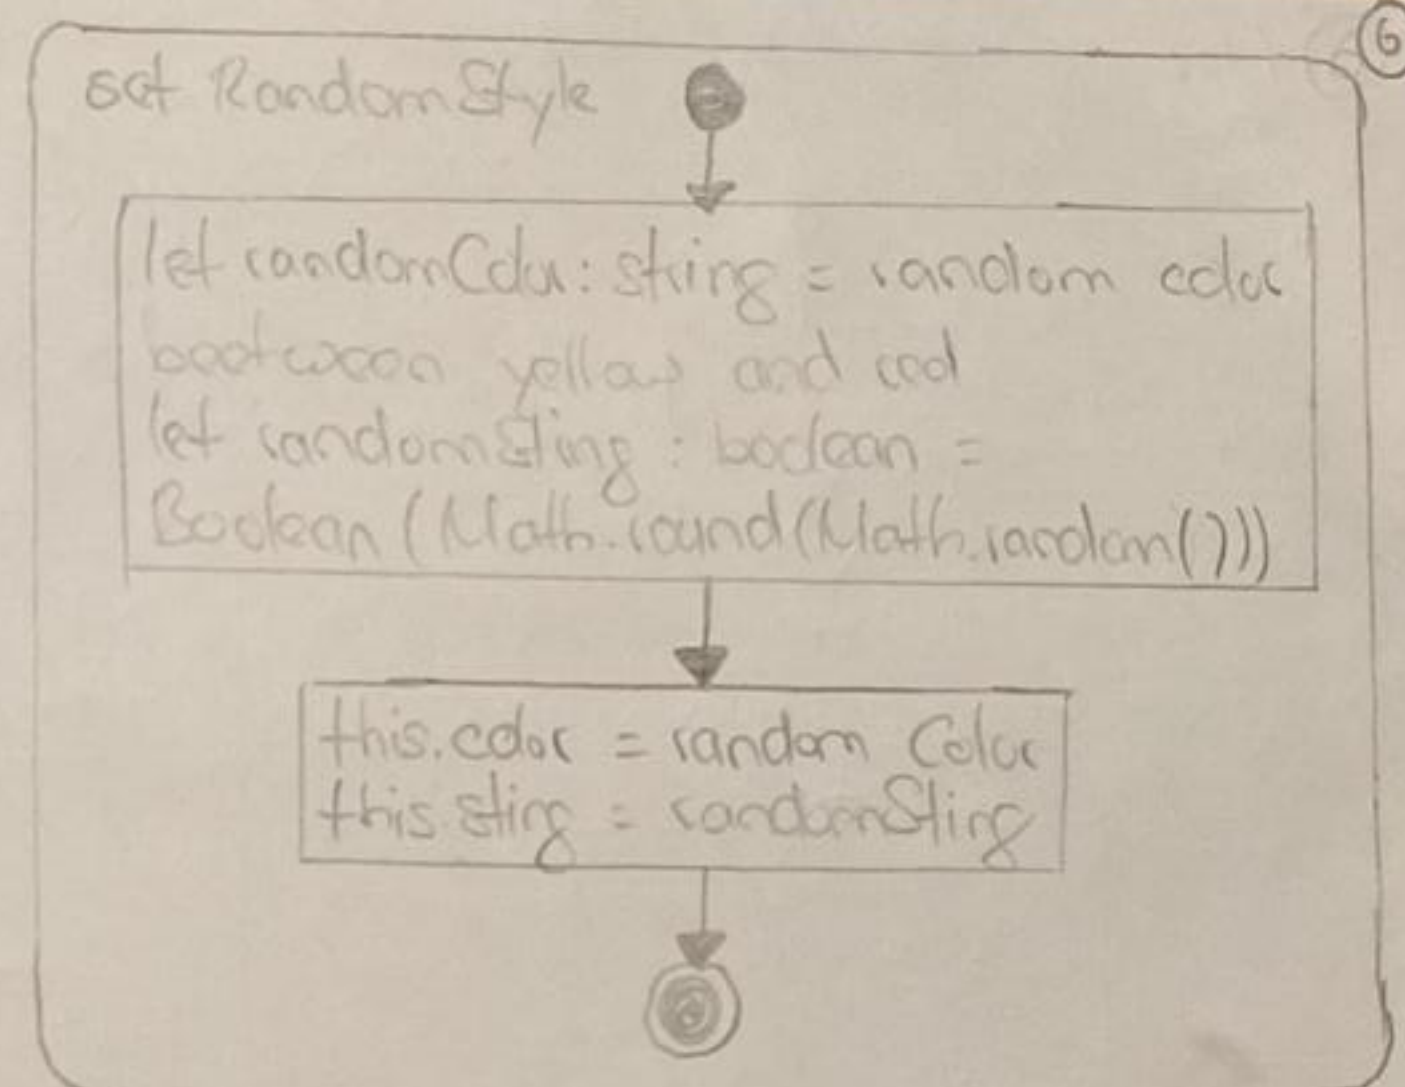 6
set RandomStyle
let randomColor: string = random color
beetween yellow and red
let randomSting : boolean =
Boolean (Math.round(Math.random()))
this.color = random Color
this.sting = randomSting